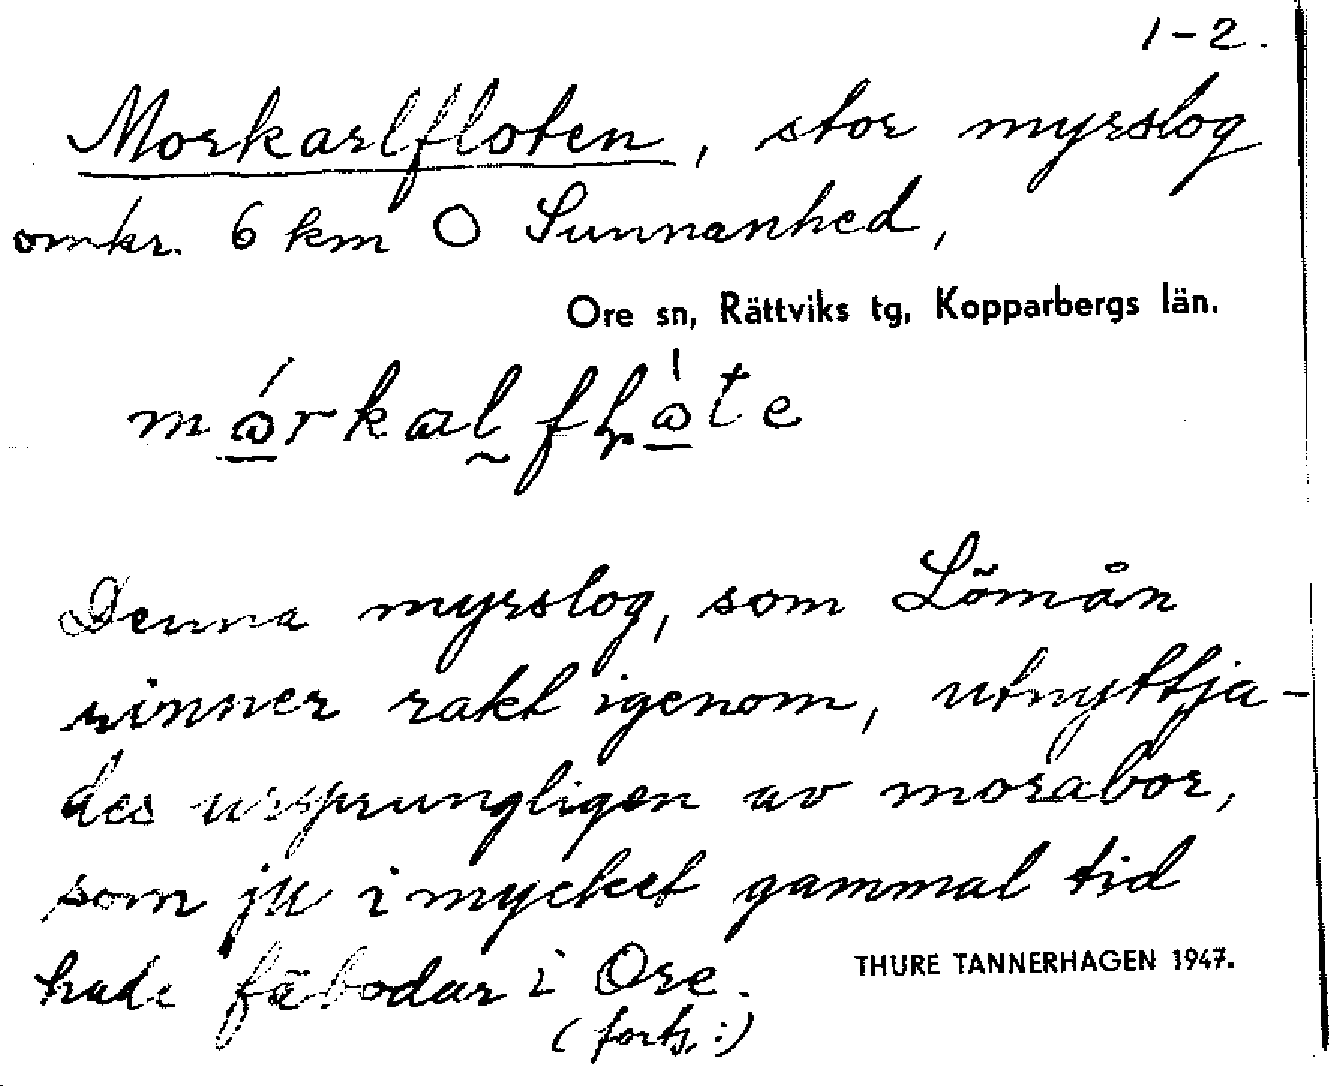 1-2.
Morkarlfloten, stor myrslog
omkr. 6 km O Sunnanhed,
Ore sn, Rättviks tg, Kopparbergs län.
Denna myrslog, som Lömån
rinner rakt igenom, utnyttja-
des ursprungligen av morabor,
som ju i mycket gammal tid
hade fäbodar i Ore.
THURE TANNERHAGEN 1947.
(forts.:)